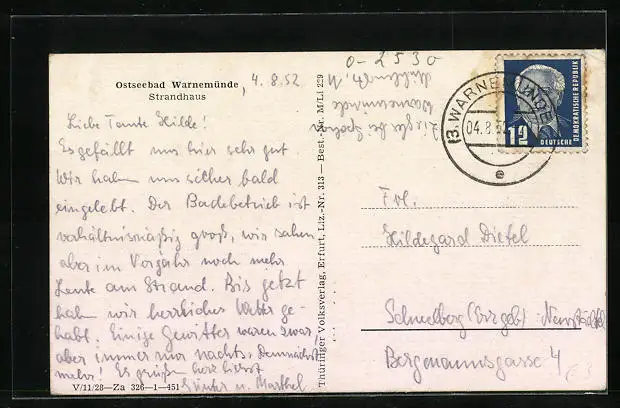 0-2530
Ostseebad Warnemünde, 4.8.52
Strandhaus
Liebe Tante Hilde!
Es gefällt uns hier sehr gut.
Wir haben uns sicher bald
eingelebt. Der Badebetrieb ist
verhältnismäßig groß, wir sahen
aber im Vorjahr noch mehr
Leute am Strand. Bis jetzt
haben wir herrliches Wetter ge-
habt. Einige Gewitter waren zwar
aber immer nur nachts. Demnächst
mehr! Es grüßen herzlichst
Günter u. Marthel
V/11/28—Za 326—1—451
Thüringer Volksverlag, Erfurt, Liz.-Nr. 313 — Best.-Nr. M/LI 229
Ziegler bei
Warnemünde
(3) WARNEMÜNDE
04.8.5
e
12
DEUTSCHE
DEMOKRATISCHE REPUBLIK
Frl.
Hildegard Dietel
Schneeberg (Erzgeb) Neustädtel
Bergmannsgasse 4